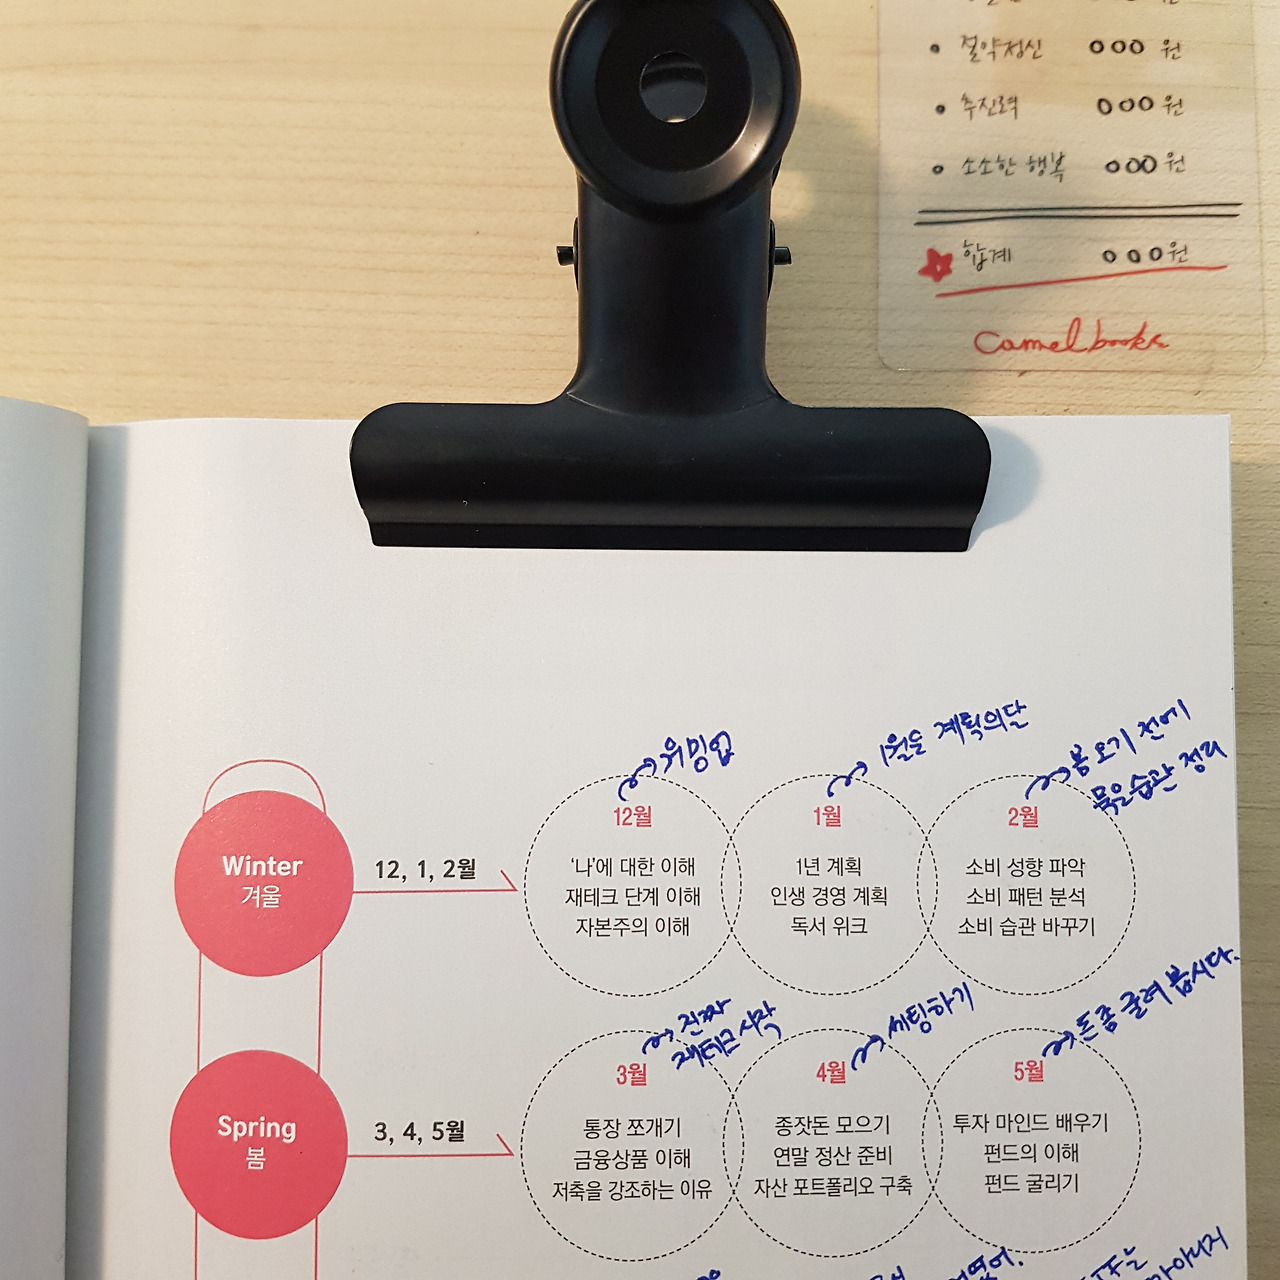 절약정신 000원
추진력 000원
소소한 행복 000원
합계 000원
Camelbooks
워밍업
1월은 계획의달
봄 오기 전에
묵은습관 정리
Winter
겨울
12, 1, 2월
12월
'나'에 대한 이해
재테크 단계 이해
자본주의 이해
1월
1년 계획
인생 경영 계획
독서 위크
2월
소비 성향 파악
소비 패턴 분석
소비 습관 바꾸기
진짜
재테크 시작
세팅하기
돈 좀 굴려 봅시다.
Spring
봄
3, 4, 5월
3월
통장 쪼개기
금융상품 이해
저축을 강조하는 이유
4월
종잣돈 모으기
연말 정산 준비
자산 포트폴리오 구축
5월
투자 마인드 배우기
펀드의 이해
펀드 굴리기